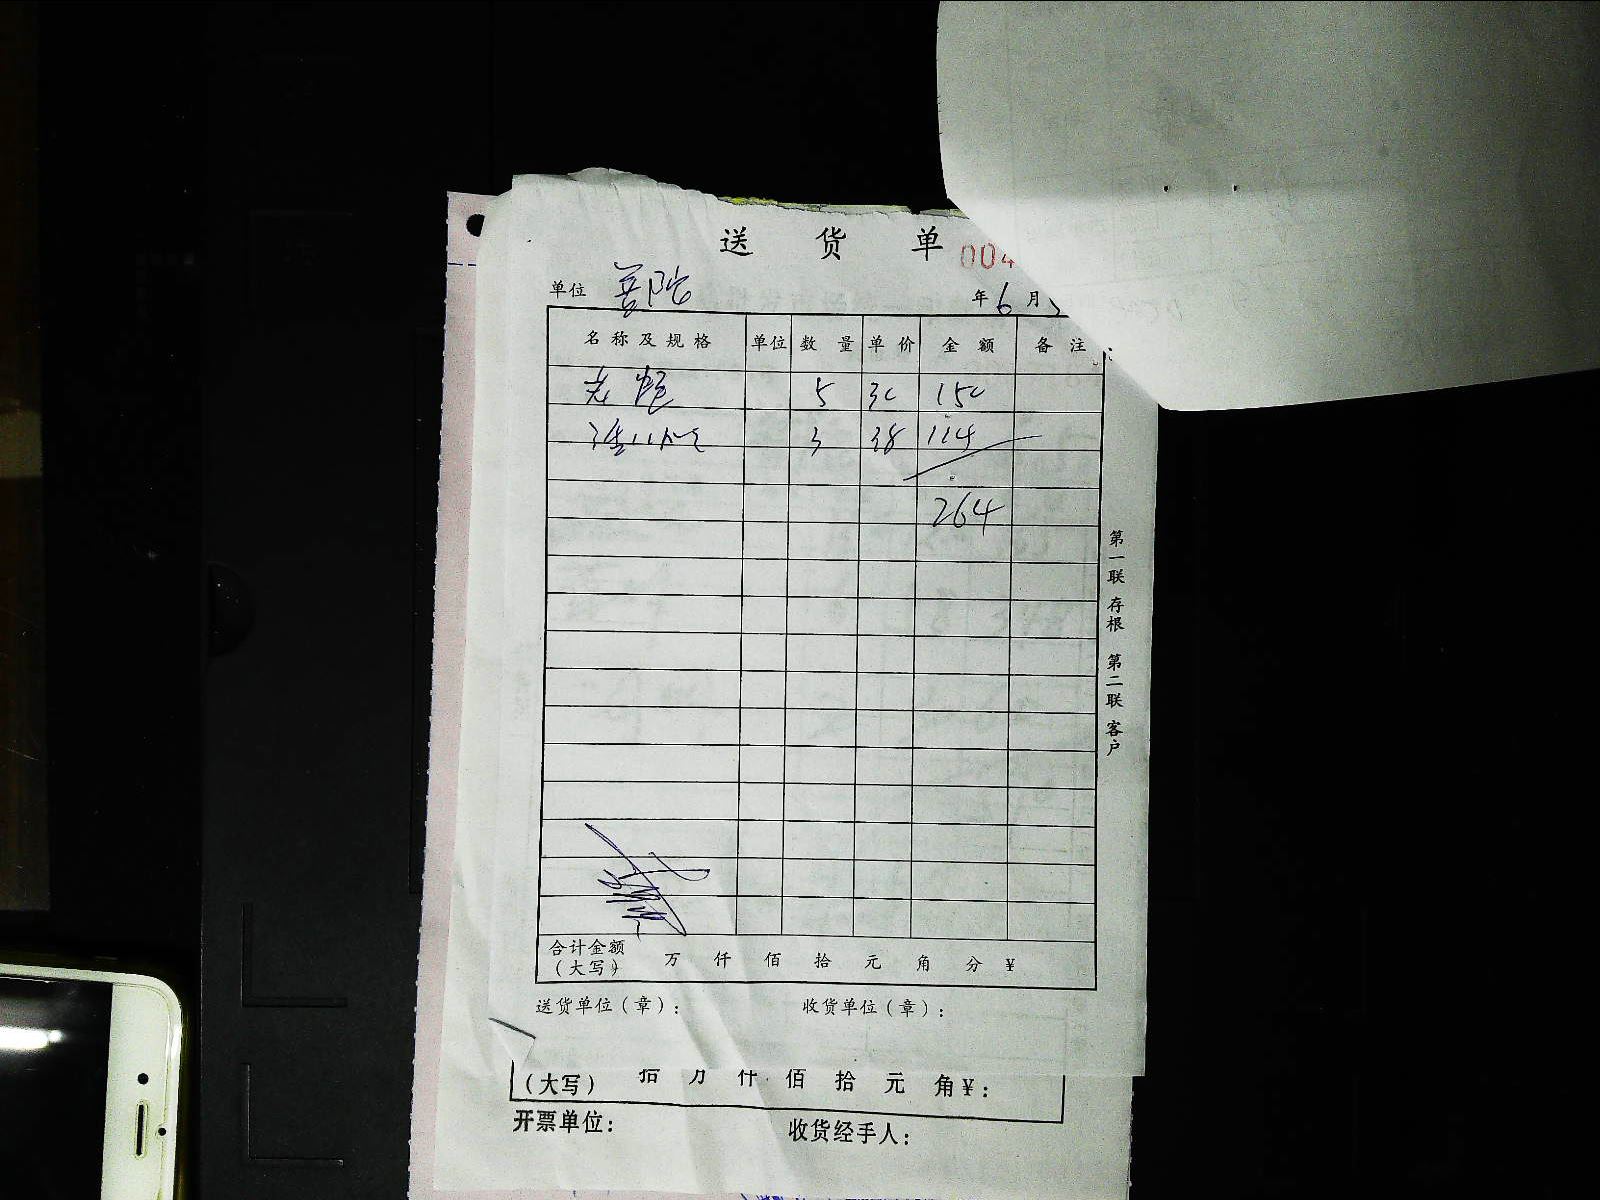 送 货 单 004
单位 普陀 年 6 月
名 称 及 规 格 单位 数 量 单 价 金 额 备 注
5 30 150
3 38 114
264
第一联 存根 第二联 客户
合计金额
（大写） 万 仟 佰 拾 元 角 分 ¥
送货单位（章）： 收货单位（章）：
（大写） 拾 万 仟 佰 拾 元 角 ¥：
开票单位： 收货经手人：